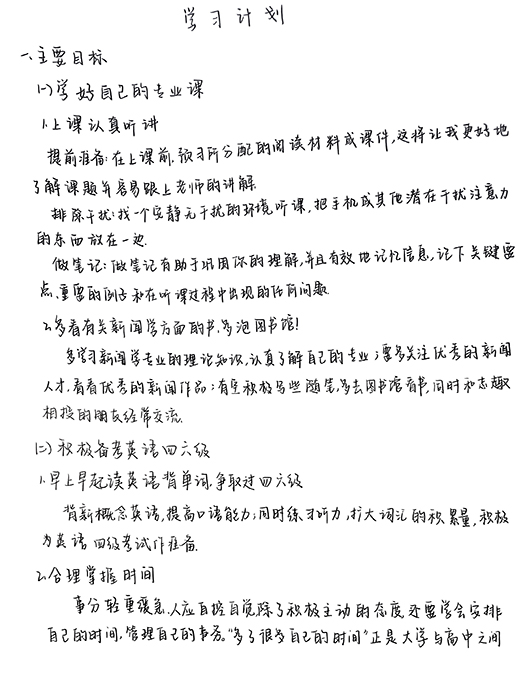 学习计划
一、主要目标
(一)学好自己的专业课
1.上课认真听讲
提前准备:在上课前,预习所分配的阅读材料或课件,这将让我更好地
了解课题并容易跟上老师的讲解.
排除干扰:找一个安静无干扰的环境听课,把手机或其他潜在干扰注意力
的东西放在一边.
做笔记:做笔记有助于巩固你的理解,并且有效地记忆信息,记下关键要
点、重要的例子和在听课过程中出现的任何问题.
2.多看有关新闻学方面的书,多泡图书馆!
多学习新闻学专业的理论知识,认真了解自己的专业;要多关注优秀的新闻
人才,看看优秀的新闻作品;有空积极写些随笔,多去图书馆看书,同时和志趣
相投的朋友经常交流.
(二)积极备考英语四六级
1.早上早起读英语背单词,争取过四六级
背新概念英语,提高口语能力;同时练习听力,扩大词汇的积累量,积极
为英语四级考试作准备.
2.合理掌握时间
事分轻重缓急,人应自控自觉,除了积极主动的态度,还要学会安排
自己的时间,管理自己的事务."多了很多自己的时间"正是大学与高中之间